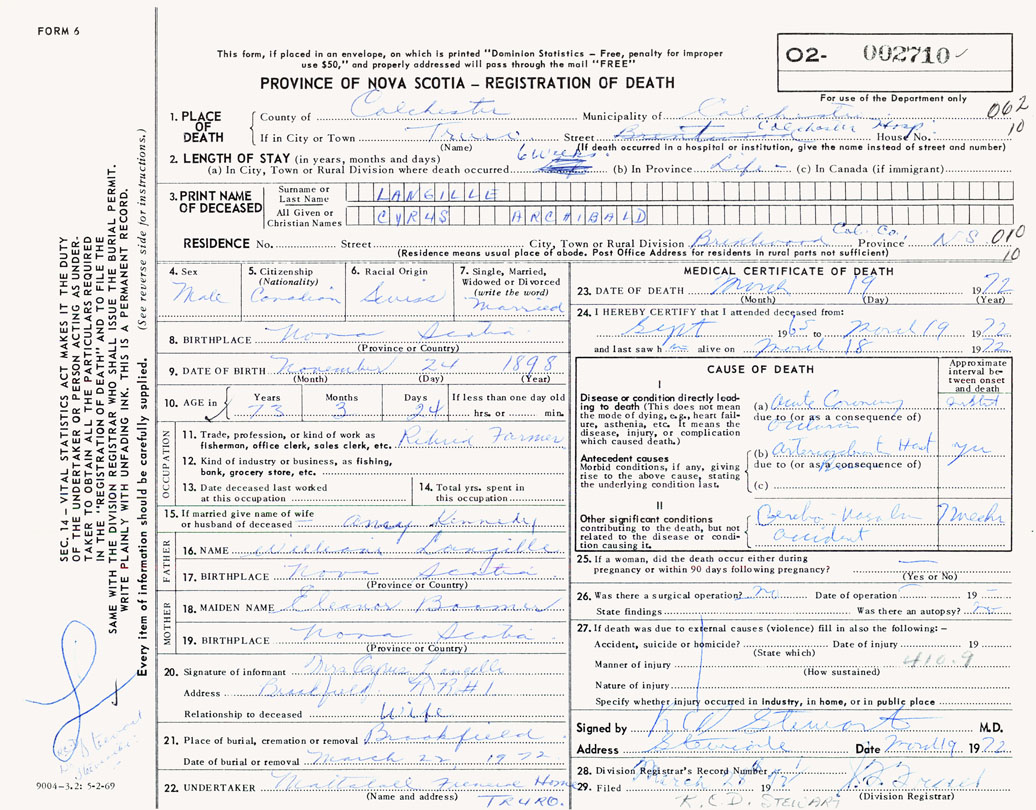 FORM 6
This form, if placed in an envelope, on which is printed "Dominion Statistics – Free, penalty for improper
use $50," and properly addressed will pass through the mail "FREE"
O2- 002710
PROVINCE OF NOVA SCOTIA – REGISTRATION OF DEATH
For use of the Department only
1. PLACE OF DEATH
County of Colchester Municipality of Colchester 062
If in City or Town Truro Street Colchester Hosp House No. 10
(Name) (If death occurred in a hospital or institution, give the name instead of street and number)
2. LENGTH OF STAY (in years, months and days) 6 Weeks
(a) In City, Town or Rural Division where death occurred (b) In Province Life – (c) In Canada (if immigrant)
3. PRINT NAME OF DECEASED
Surname or Last Name LANGILLE
All Given or Christian Names CYRUS ARCHIBALD
RESIDENCE No. Street City, Town or Rural Division Brentwood Col. Co. Province NS 010
(Residence means usual place of abode. Post Office Address for residents in rural parts not sufficient) 10
4. Sex Male
5. Citizenship (Nationality) Canadian
6. Racial Origin Swiss
7. Single, Married, Widowed or Divorced (write the word) Married
8. BIRTHPLACE Nova Scotia
(Province or Country)
9. DATE OF BIRTH November 24 1898
(Month) (Day) (Year)
10. AGE in Years 73 Months 3 Days 24 If less than one day old hrs. or min.
OCCUPATION
11. Trade, profession, or kind of work as
fisherman, office clerk, sales clerk, etc. Retired Farmer
12. Kind of industry or business, as fishing,
bank, grocery store, etc.
13. Date deceased last worked
at this occupation
14. Total yrs. spent in
this occupation
15. If married give name of wife
or husband of deceased – Kennedy
FATHER
16. NAME William Langille
17. BIRTHPLACE Nova Scotia
(Province or Country)
MOTHER
18. MAIDEN NAME Eleanor Boomer
19. BIRTHPLACE Nova Scotia
(Province or Country)
20. Signature of informant Mrs Cyrus Langille
Address Brookfield RR#1
Relationship to deceased Wife
21. Place of burial, cremation or removal Brookfield
Date of burial or removal March 22, 1972
22. UNDERTAKER Mattatall Funeral Home
(Name and address) TRURO.
MEDICAL CERTIFICATE OF DEATH
23. DATE OF DEATH March 19 1972
(Month) (Day) (Year)
24. I HEREBY CERTIFY that I attended deceased from:
Sept 1965 to March 19 1972
and last saw h im alive on March 18 1972
CAUSE OF DEATH
Approximate interval between onset and death
I
Disease or condition directly leading
to death (This does not mean
the mode of dying, e.g., heart failure,
asthenia, etc. It means the
disease, injury, or complication
which caused death.)
(a) Acute Coronary
due to (or as a consequence of)
Occlusion
Antecedent causes
Morbid conditions, if any, giving
rise to the above cause, stating
the underlying condition last.
(b) Heart yrs
due to (or as a consequence of)
(c)
II
Other significant conditions
contributing to the death, but not
related to the disease or condition
causing it.
Cerebro-Vascular
accident
7 weeks
25. If a woman, did the death occur either during
pregnancy or within 90 days following pregnancy?
(Yes or No)
26. Was there a surgical operation? no Date of operation – 19 –
State findings Was there an autopsy? no
27. If death was due to external causes (violence) fill in also the following: –
Accident, suicide or homicide? Date of injury 19
(State which)
Manner of injury 410.9
(How sustained)
Nature of injury
Specify whether injury occurred in Industry, in home, or in public place
Signed by Stewart M.D.
Address Date March 19 1972
28. Division Registrar's Record Number
29. Filed March 19
(Division Registrar)
K.C.D. STEWART
SEC. 14 – VITAL STATISTICS ACT MAKES IT THE DUTY
OF THE UNDERTAKER OR PERSON ACTING AS UNDER-
TAKER TO OBTAIN ALL THE PARTICULARS REQUIRED
IN THE "REGISTRATION OF DEATH" AND TO FILE THE
SAME WITH THE DIVISION REGISTRAR WHO SHALL ISSUE THE BURIAL PERMIT.
WRITE PLAINLY WITH UNFADING INK. THIS IS A PERMANENT RECORD.
Every item of information should be carefully supplied. (See reverse side for instructions.)
9004–3.2: 5-2-69